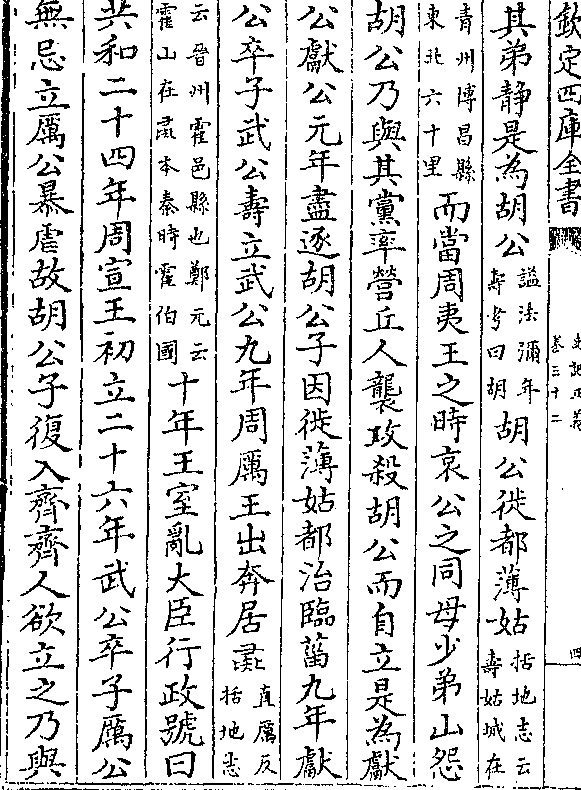 欽定四庫全書
史記正義
卷三十二
四
其弟静是為胡公謚法彌年壽考曰胡胡公徙都薄姑括地志云薄姑城在
青州博昌縣東北六十里而當周夷王之時哀公之同母少弟山怨
胡公乃與其黨率營丘人襲攻殺胡公而自立是為獻
公獻公元年盡逐胡公子因徙薄姑都治臨菑九年獻
公卒子武公壽立武公九年周厲王出奔居彘直厲反括地志
云晉州霍邑縣也鄭元云霍山在彘本秦時霍伯國十年王室亂大臣行政號曰
共和二十四年周宣王初立二十六年武公卒子厲公
無忌立厲公暴虐故胡公子復入齊齊人欲立之乃與